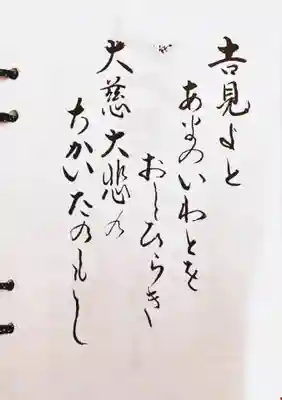 吉見よと
あまのいわとを
おしひらき
大慈大悲の
ちかいたのもし